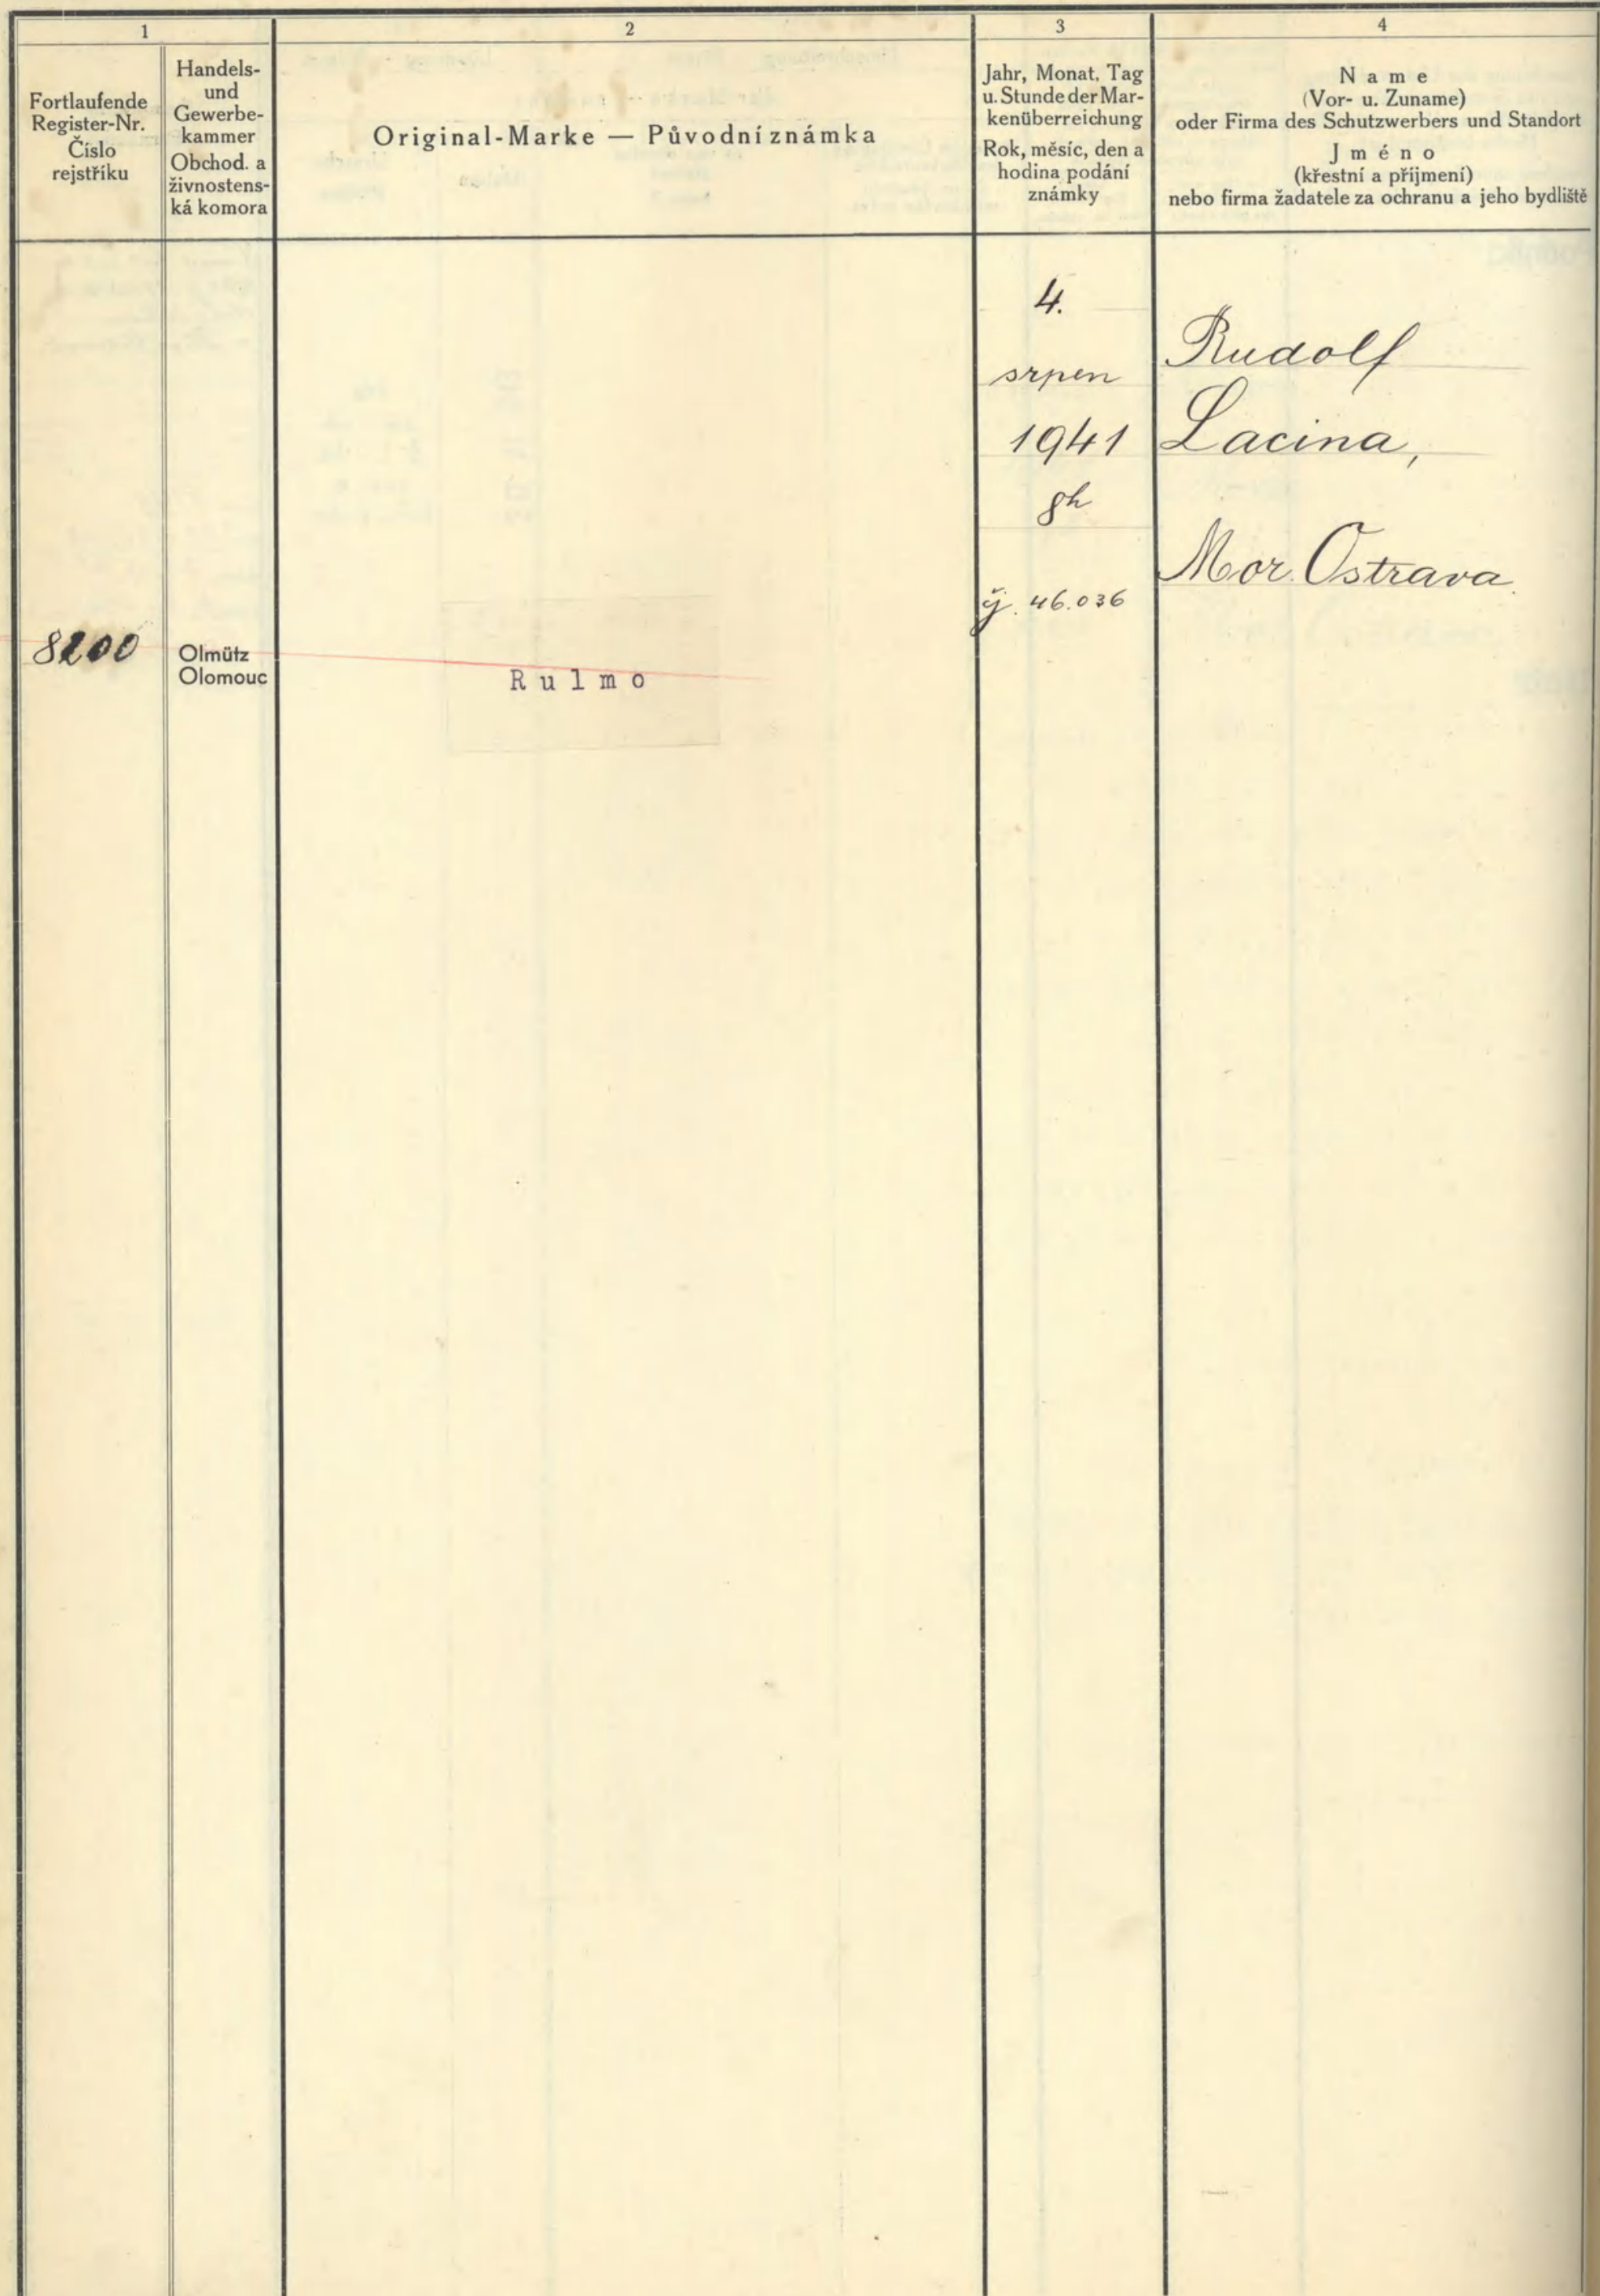 1
2
3
4
Fortlaufende
Register-Nr.
Číslo
rejstříku
Handels-
und
Gewerbe-
kammer
Obchod. a
živnostens-
ká komora
Original-Marke — Původní známka
Jahr, Monat, Tag
u. Stunde der Mar-
kenüberreichung
Rok, měsíc, den a
hodina podání
známky
Name
(Vor- u. Zuname)
oder Firma des Schutzwerbers und Standort
Jméno
(křestní a příjmení)
nebo firma žadatele za ochranu a jeho bydliště
8200
Olmütz
Olomouc
Rulmo
4.
srpen
1941
8h
čj. 46.036
Rudolf
Lacina,
Mor. Ostrava.